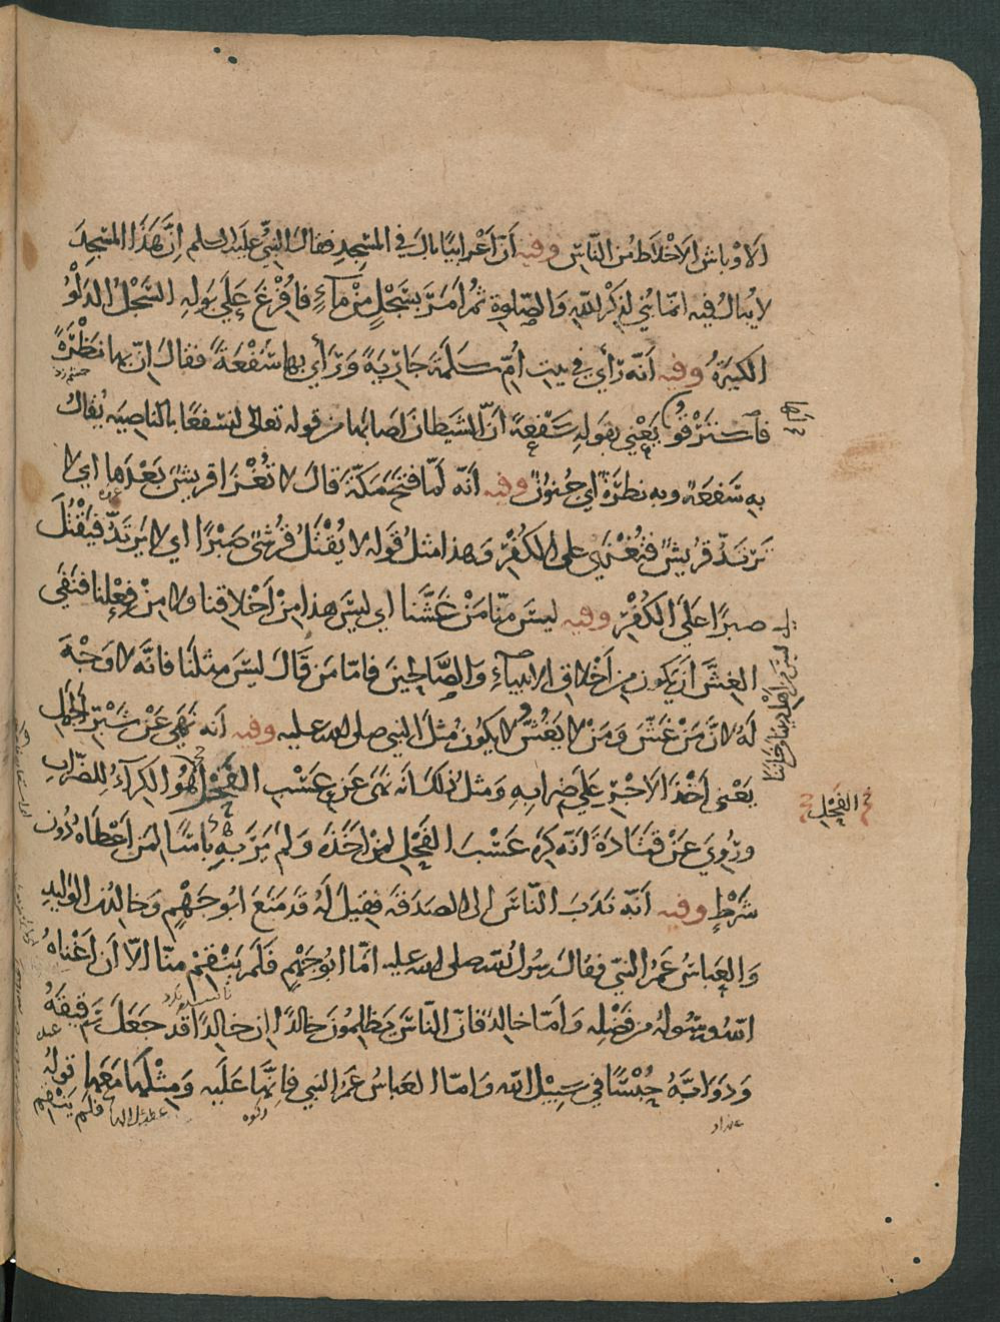 الاوباش الاخلاط من النّاس وفيه أنّ أعرابيًا بال في المسجدِ فقال النبيّ عليه السلم إنّ هَذَا المسْجِدَ
لا يُبالُ فيه انّما بُني لِذِكْرِ اللهِ وَالصّلوةِ ثمُ أمَرَ بسَجْلٍ مِنْ مآءٍ فافُرْغَ عَلَى بَولِهِ السَّجْلُ الدَلْوُ
الكبيَرةُ وفيه اَنّه رَأي في بيت أمّ سَلَمَةَ جَارِيَةً وَرَأي بها سَفْعَةً فقالَ انّ بها نَظْرَةً
فاَستَرْقُوا يَعْني بقَولهِ سَفْعَة أنّ الشيَطانَ اصَابَها من قوله تعالى لنسْفعًا بالناصِيَه يُقالُ
بهِ سَفعَة وبه نظرَة اي جُنونٌ وفيه اَنّه لمّا فتحَ مكّةَ قالَ لا تُغْزَا قريشٌ بَعْدَها اي لا
تَرتدّ قُريشٌ فتُغْزَي على الكُفْرِ وَهذا مثلُ قوله لا يُقْتَلُ قُرشيٌ صَبْرًا اي لا يَرتَدّ فيُقْتَلَ
صبرًا عَلَى الكُفْرِ وفيه ليسَ منّا مَنْ غَشَّنا اي ليسَ هذا مِنْ أخْلاقِنا ولا مِنْ فِعْلِنا فنَفَي
الغِشَّ اَن يَكونَ من أخْلاقِ الانبياَءِ وَالصَّالحِينَ فامّا مَن قَالَ ليسَ مثلَنا فانّه لا وَجْهَ
لَهُ لانّ مَنْ غَشَّ وَمَنْ لا يَغُشّ لا يكونُ مثلَ النبي صلى الله عليه وفيه أنه نهَي عَنْ شَبْرِ الجَمل
يَعْني أخْذَ الاَجْرِ عَلَي ضِرابِهِ وَمثلُ ذلكَ انَه نهَى عَن عَسْبِ الفَحْلِ هُو الكِرآءُ للضّرابِ
ورُوِيَ عَنْ قتَادَةَ اَنّه كرِهَ عَسْبَ الفَحْلِ لمنْ اخَذَهُ وَلَم يَرَ بهِ باسًا لمن أعْطَاهُ دُونَ
شَرْطٍ وفيه اَنّه نَدَبَ النّاسَ الى الصَدَقَةِ فقيلَ لَهُ قد مَنَعَ ابو جَهْمٍ وَخالدُ بن الوَليدِ
وَالعَباسُ عَمّ النبيّ فقالَ رَسُولُ الله صلى الله عليه امّا ابُو جَهْمٍ فلَم يَنْقِمْ منّا الاّ أن أغْناهُ
اللّه ورَسُولُه من فَضْلِهِ وَامّا خالدٌ فانّ الناسَ يَظلِمُونَ خالدًا ان خالدًا قد جَعَلَ رَقيقَهُ
وَدَوَابَّهُ حُبْسًا في سَبِيْلِ اللّهِ وَامّا العَباسُ عَمّ النبي فإنّها عَلَيه وَمِثْلُها مَعَها قولُه
فلَم ينْقِم
ليسَ من اهْلِ دِيننا
الفَحْلِ